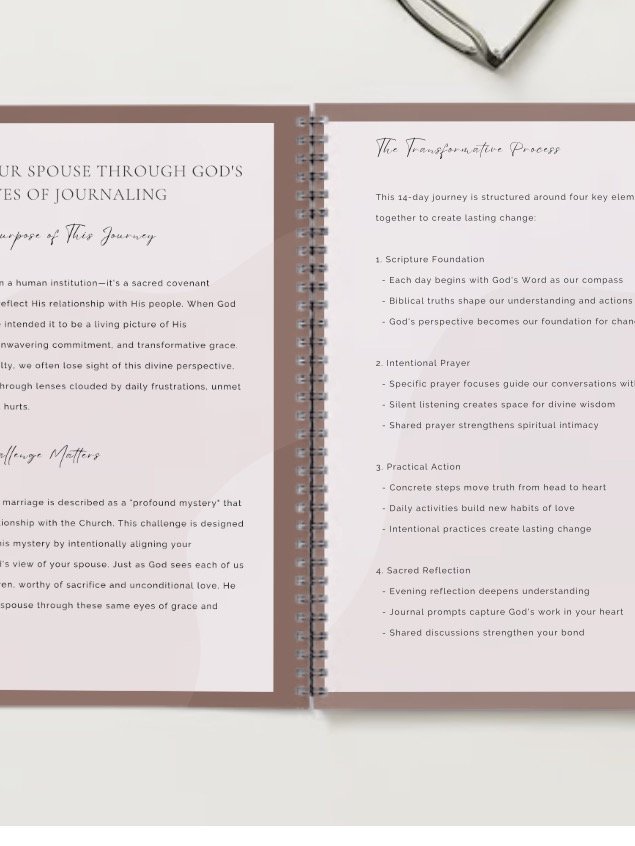 UR SPOUSE THROUGH GOD'S
ES OF JOURNALING
urpose of This Journey
n a human institution—it's a sacred covenant
eflect His relationship with His people. When God
intended it to be a living picture of His
nwavering commitment, and transformative grace.
lty, we often lose sight of this divine perspective,
hrough lenses clouded by daily frustrations, unmet
hurts.
allenge Matters
marriage is described as a "profound mystery" that
ionship with the Church. This challenge is designed
his mystery by intentionally aligning your
d's view of your spouse. Just as God sees each of us
ren, worthy of sacrifice and unconditional love, He
spouse through these same eyes of grace and
The Transformative Process
This 14-day journey is structured around four key elem
together to create lasting change:
1. Scripture Foundation
- Each day begins with God's Word as our compass
- Biblical truths shape our understanding and actions
- God's perspective becomes our foundation for chan
2. Intentional Prayer
- Specific prayer focuses guide our conversations wit
- Silent listening creates space for divine wisdom
- Shared prayer strengthens spiritual intimacy
3. Practical Action
- Concrete steps move truth from head to heart
- Daily activities build new habits of love
- Intentional practices create lasting change
4. Sacred Reflection
- Evening reflection deepens understanding
- Journal prompts capture God's work in your heart
- Shared discussions strengthen your bond